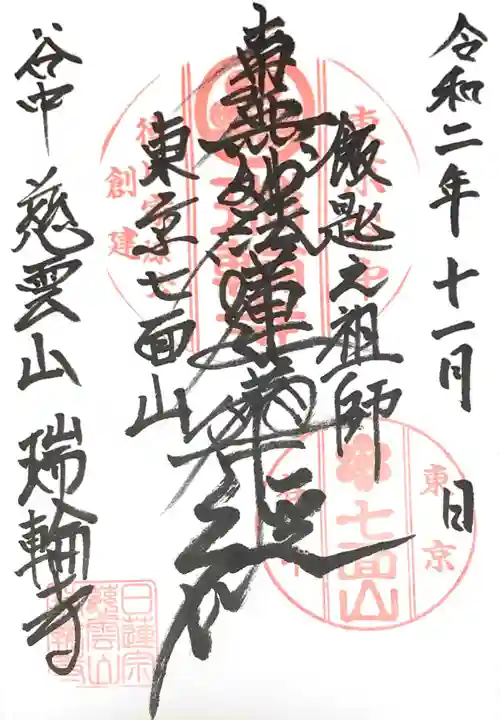 令和二年十一月 日
飯匙之祖師
南無妙法蓮華経
東京七面山
谷中 慈雲山 瑞輪寺
東京
七面山
創建
日蓮宗
慈雲山